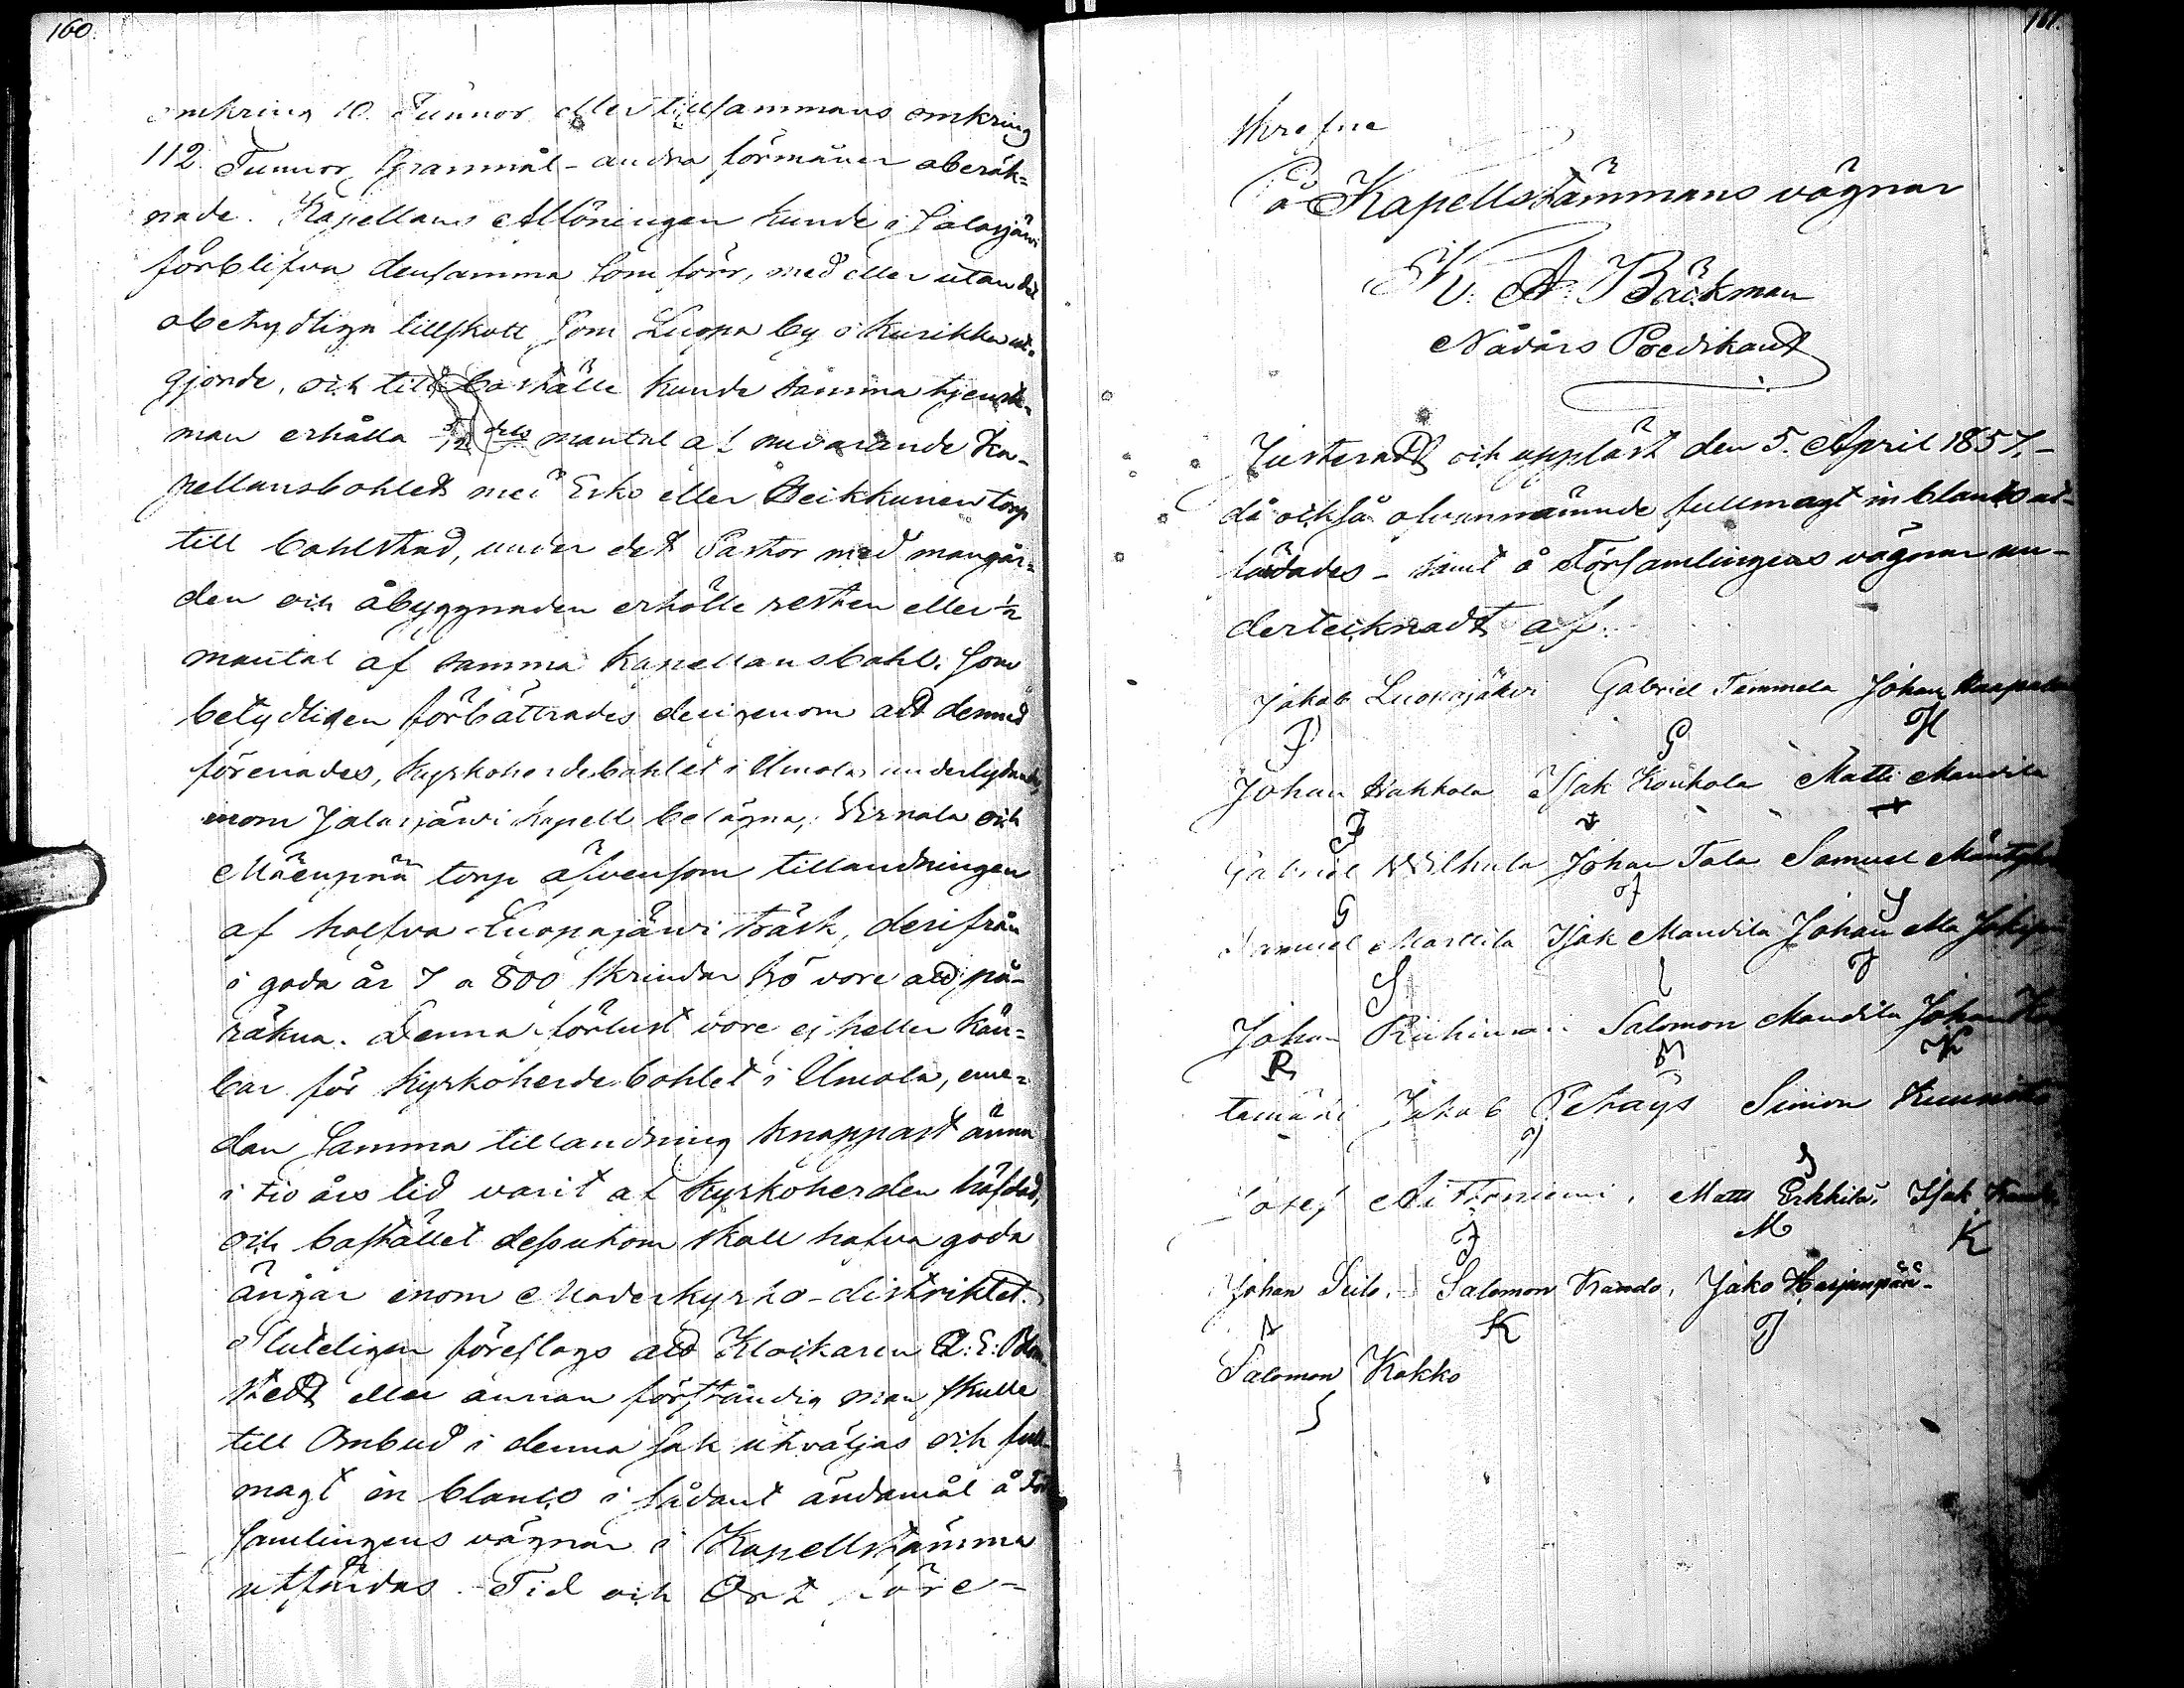 160.
omkring 10. Tunnor eller tillsammans omkring
112. Tunnor Spannmål - andra förmåner oberäk=
nade. Kapellans Aflöningen kunde i Jalasjärvi
förblifva densamma som förr, med eller utan det
obetydliga tillskott, som Luopa by i Kurikka ut-
gjorde, och till boställe kunde samma tjenste-
man erhålla 5/12 dels mantal af nuvarande Ka-
pellansbohlet med Esko eller Heikkinen torp
till bohlstad, under det Pastor med mangår=
den och åbyggnaden erhölle resten eller ½
mantal af samma Kapellansbohl. som
betydligen förbättrades derigenom att dermed
förenades, Kyrkoherdebohlet i Ilmola underlydande,
inom Jalasjärvi kapell belägna, Wirnala och
Mäenpää torp äfvensom tillandningen
af halfva Luopajärvi träsk, derifrån
i goda år 7 a 800 skrindar hö vore att på-
räkna. Denna förlust vore ej heller kän=
bar för Kyrkoherdebohlet i Ilmola, eme=
dan samma tillandning knappast ännu
i tio års tid varit af Kyrkoherden häfdad,
och bostället dessutom skall hafva goda
ängar inom Moderkyrko-distriktet.
Sluteligen föreslogs att Klockaren
stedt eller annan förståndig man skulle
till Ombud i denna sak utväljas och full-
magt in blanco i sådant ändamål å För
samlingens vägnar i Kapellstämma
utfärdas. Tid och Ort före-
161.
skrefne
På Kapellstämmans vägnar
K: A: Bäckman
Nådårs Predikant
Justeradt och uppläst den 5. April 1857. -
då också ofvannämnde fullmagt in blanco ut-
färdades - samt å Församlingens vägnar un-
dertecknadt af.
Jakob Luopajärvi Gabriel Temmela Johan
J G H
Johan Hakkola Isak Kouhola Matti Mandila
J
Gabriel Wilhula Johan Tala Samuel
G J S
Samuel Marttila Isak Mandila Johan
S I J
Johan Riihimäki Salomon Mandila Johan
R M K
Jakob Petäys Simon
J S
Josef Aittoniemi, Matts Erkkilä, Isak
J M K
Johan Seilo, Salomon Kando, Jako Harjunpää -
K J
Salomon Kokko
S